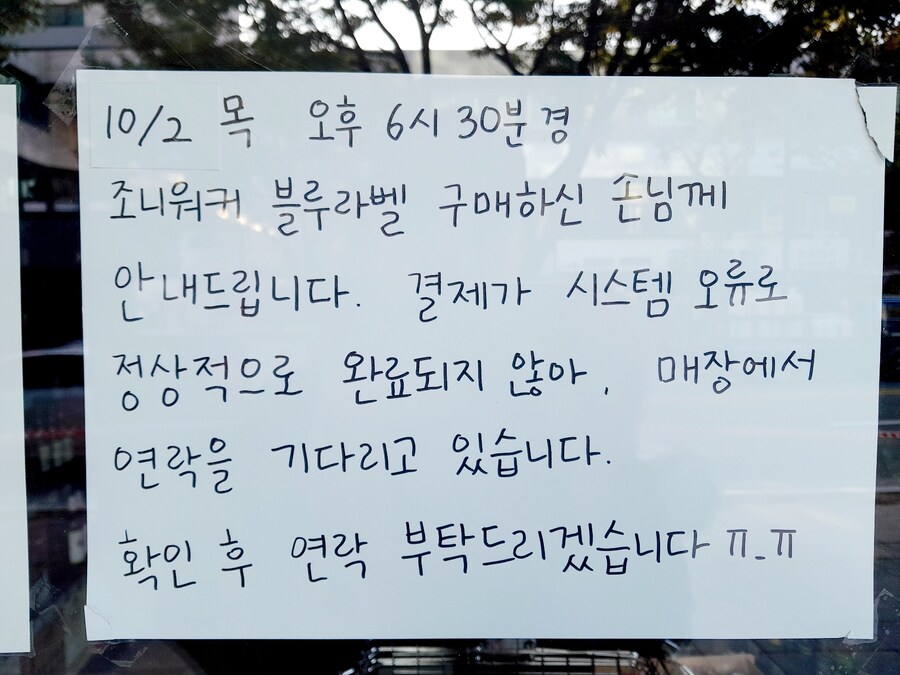 10/2 목 오후 6시 30분경
조니워커 블루라벨 구매하신 손님께
안내드립니다. 결제가 시스템 오류로
정상적으로 완료되지 않아, 매장에서
연락을 기다리고 있습니다.
확인 후 연락 부탁드리겠습니다 ㅠ_ㅠ